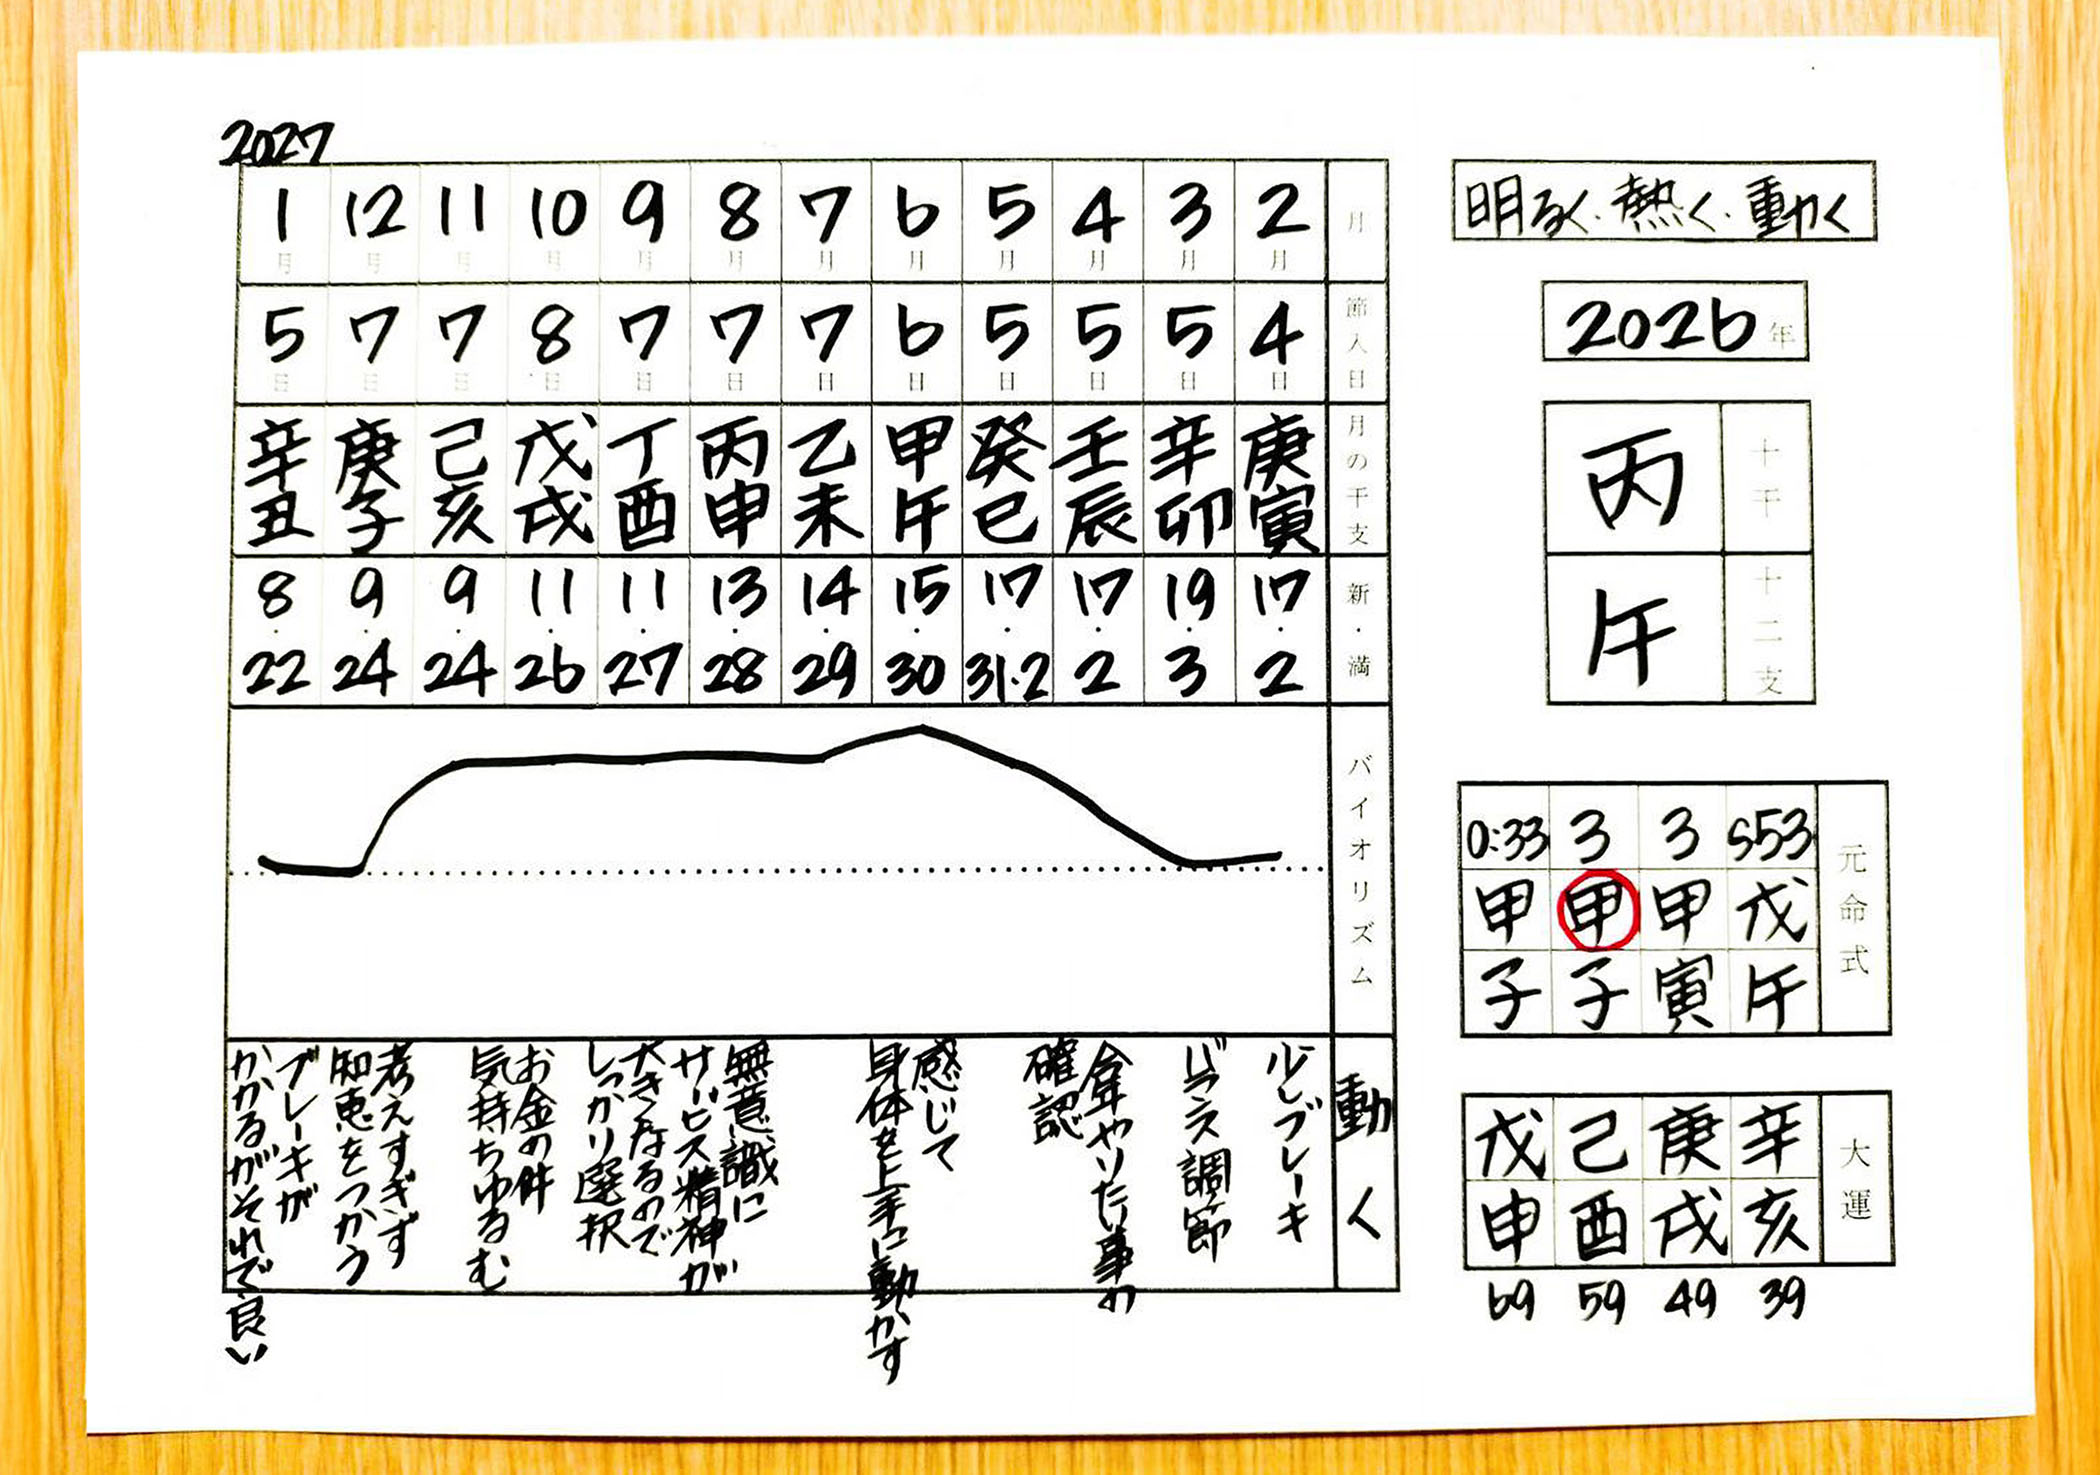 2027
1 12 11 10 9 8 7 6 5 4 3 2 月
月 月 月 月 月 月 月 月 月 月 月 月
5 7 7 8 7 7 7 6 5 5 5 4 節入日
日 日 日 日 日 日 日 日 日 日 日 日
辛丑 庚子 己亥 戊戌 丁酉 丙申 乙未 甲午 癸巳 壬辰 辛卯 庚寅 月の干支
8・22 9・24 9・24 11・26 11・27 13・28 14・29 15・30 17・31・2 17・2 19・3 17・2 新・満
バイオリズム
動く
少しブレーキ
バランス調節
今年やりたい事の
確認
感じて
身体を上手に動かす
無意識に
サービス精神が
大きくなるので
しっかり選択
お金の件
気持ちゆるむ
考えすぎず
知恵をつかう
ブレーキが
かかるがそれで良い
明るく・熱く・動く
2026年
丙 十干
午 十二支
0:33 3 3 S53 元命式
甲 甲 甲 戊
子 子 寅 午
戊 己 庚 辛 大運
申 酉 戌 亥
69 59 49 39